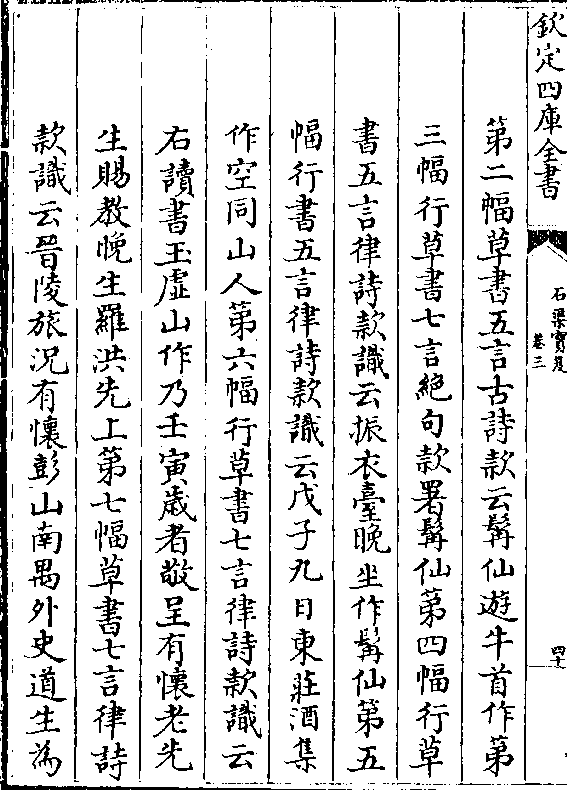 欽定四庫全書
石渠寶笈
卷三
四十
第二幅草書五言古詩款云髯仙遊牛首作第
三幅行草書七言絶句款署髯仙第四幅行草
書五言律詩款識云振衣臺晚坐作髯仙第五
幅行書五言律詩款識云戊子九日東莊酒集
作空同山人第六幅行草書七言律詩款識云
右讀書玉虛山作乃壬寅歲者敬呈有懷老先
生賜教晚生羅洪先上第七幅草書七言律詩
款識云晉陵旅況有懷彭山南禺外史道生為